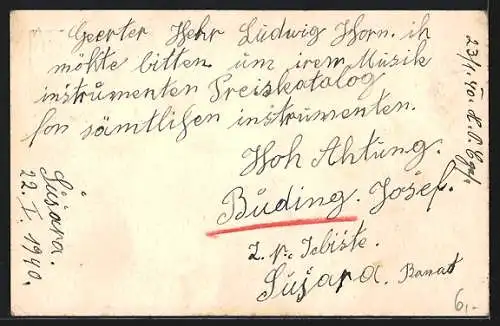 Geerter Hehr Ludwig Horn. ih
möhte bitten um irem Musik
instrumenten Preiskatalog
fon sämtlihen instrumenten.
Hoh Ahtung.
Büding. Josef.
Sušara. Banat
Sušara.
22. I. 1940.
23/1. 40.
6,-